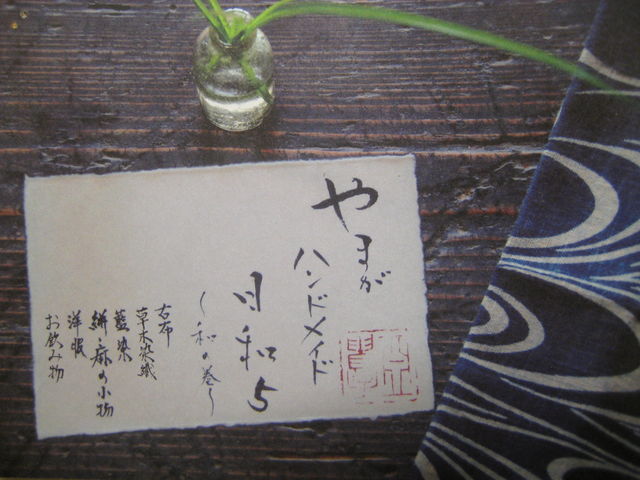 やまが
ハンドメイド
日和5
〜和の巻〜
古布
草木染織
藍染
絣・麻の小物
洋服
お飲み物